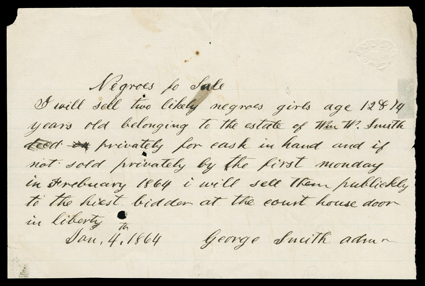 Negroes fo Sale
I will sell two likely negroes girls age 12 & 14
years old belonging to the estate of Wm W. Smith
deed privately for cash in hand and if
not sold privately by the first monday
in Frebuary 1864 i will sell them publickly
to the hiest bidder at the court house door
in liberty
Jan, 4, 1864 George Smith admr